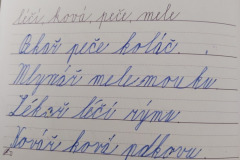 léčí, ková, peče, mele
Pekař peče koláč.
Mlynář mele mouku
Lékař léčí rýmu
Kovář ková podkovu